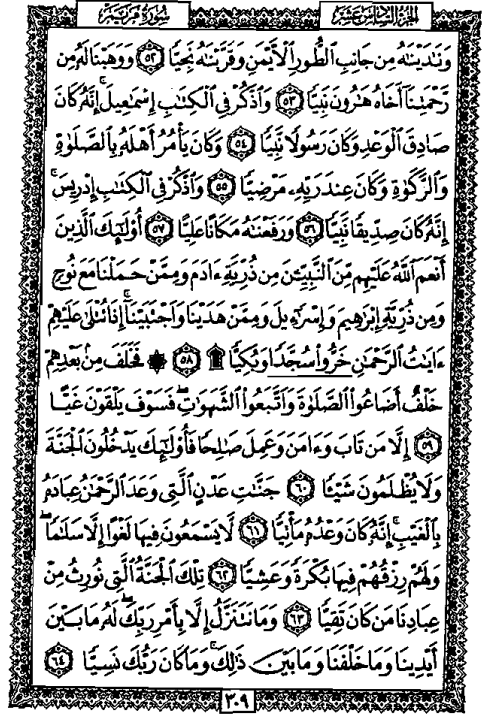 الجزء السادس عشر
سورة مريم
وَنَٰدَيۡنَٰهُ مِن جَانِبِ ٱلطُّورِ ٱلۡأَيۡمَنِ وَقَرَّبۡنَٰهُ نَجِيّٗا ۝٥٢ وَوَهَبۡنَا لَهُۥ مِن
رَّحۡمَتِنَآ أَخَاهُ هَٰرُونَ نَبِيّٗا ۝٥٣ وَٱذۡكُرۡ فِي ٱلۡكِتَٰبِ إِسۡمَٰعِيلَۚ إِنَّهُۥ كَانَ
صَادِقَ ٱلۡوَعۡدِ وَكَانَ رَسُولٗا نَّبِيّٗا ۝٥٤ وَكَانَ يَأۡمُرُ أَهۡلَهُۥ بِٱلصَّلَوٰةِ
وَٱلزَّكَوٰةِ وَكَانَ عِندَ رَبِّهِۦ مَرۡضِيّٗا ۝٥٥ وَٱذۡكُرۡ فِي ٱلۡكِتَٰبِ إِدۡرِيسَۚ
إِنَّهُۥ كَانَ صِدِّيقٗا نَّبِيّٗا ۝٥٦ وَرَفَعۡنَٰهُ مَكَانًا عَلِيًّا ۝٥٧ أُوْلَٰٓئِكَ ٱلَّذِينَ
أَنۡعَمَ ٱللَّهُ عَلَيۡهِم مِّنَ ٱلنَّبِيِّـۧنَ مِن ذُرِّيَّةِ ءَادَمَ وَمِمَّنۡ حَمَلۡنَا مَعَ نُوحٖ
وَمِن ذُرِّيَّةِ إِبۡرَٰهِيمَ وَإِسۡرَٰٓءِيلَ وَمِمَّنۡ هَدَيۡنَا وَٱجۡتَبَيۡنَآۚ إِذَا تُتۡلَىٰ عَلَيۡهِمۡ
ءَايَٰتُ ٱلرَّحۡمَٰنِ خَرُّواْ سُجَّدٗا وَبُكِيّٗا ۩ ۝٥٨ ۞ فَخَلَفَ مِنۢ بَعۡدِهِمۡ
خَلۡفٌ أَضَاعُواْ ٱلصَّلَوٰةَ وَٱتَّبَعُواْ ٱلشَّهَوَٰتِۖ فَسَوۡفَ يَلۡقَوۡنَ غَيًّا
۝٥٩ إِلَّا مَن تَابَ وَءَامَنَ وَعَمِلَ صَٰلِحٗا فَأُوْلَٰٓئِكَ يَدۡخُلُونَ ٱلۡجَنَّةَ
وَلَا يُظۡلَمُونَ شَيۡـٔٗا ۝٦٠ جَنَّٰتِ عَدۡنٍ ٱلَّتِي وَعَدَ ٱلرَّحۡمَٰنُ عِبَادَهُۥ
بِٱلۡغَيۡبِۚ إِنَّهُۥ كَانَ وَعۡدُهُۥ مَأۡتِيّٗا ۝٦١ لَّا يَسۡمَعُونَ فِيهَا لَغۡوًا إِلَّا سَلَٰمٗاۖ
وَلَهُمۡ رِزۡقُهُمۡ فِيهَا بُكۡرَةٗ وَعَشِيّٗا ۝٦٢ تِلۡكَ ٱلۡجَنَّةُ ٱلَّتِي نُورِثُ مِنۡ
عِبَادِنَا مَن كَانَ تَقِيّٗا ۝٦٣ وَمَا نَتَنَزَّلُ إِلَّا بِأَمۡرِ رَبِّكَۖ لَهُۥ مَا بَيۡنَ
أَيۡدِينَا وَمَا خَلۡفَنَا وَمَا بَيۡنَ ذَٰلِكَۚ وَمَا كَانَ رَبُّكَ نَسِيّٗا ۝٦٤
٣٠٩